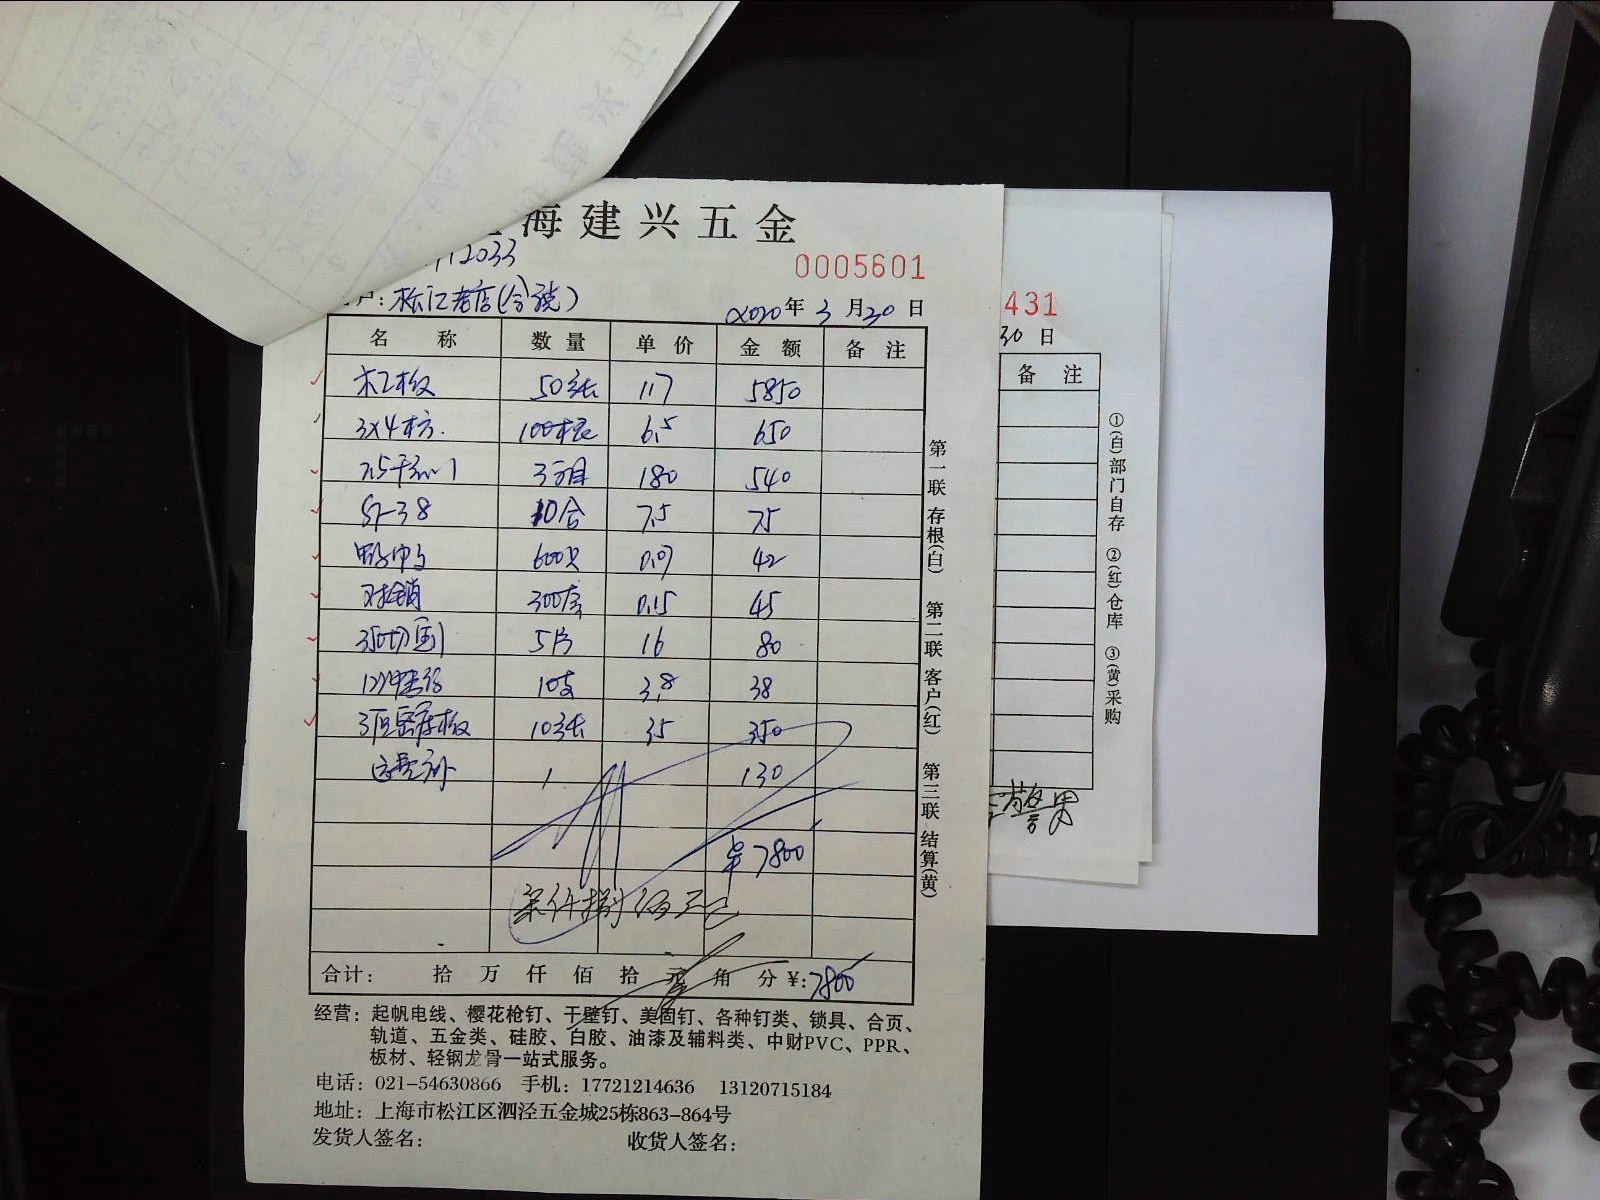 海建兴五金
12033
0005601
户：松江老店(含税)
2020年3月30日
名称 数量 单价 金额 备注
木工板 50张 117 5850
3×4木方 100根 6.5 650
3 180 540
ST-38 10合 7.5 75
600只 0.07 42
300套 0.15 45
350切割 5片 16 80
10支 3.8 38
3厘密度板 10张 35 350
运费另外 1 130
¥7800
柒仟捌佰元
合计： 拾 万 仟 佰 拾 元 角 分 ¥：7800
第一联 存根(白) 第二联 客户(红) 第三联 结算(黄)
经营：起帆电线、樱花枪钉、干壁钉、美固钉、各种钉类、锁具、合页、
轨道、五金类、硅胶、白胶、油漆及辅料类、中财PVC、PPR、
板材、轻钢龙骨一站式服务。
电话：021-54630866 手机：17721214636 13120715184
地址：上海市松江区泗泾五金城25栋863-864号
发货人签名： 收货人签名：
431
30日
备注
①(白)部门自存 ②(红)仓库 ③(黄)采购